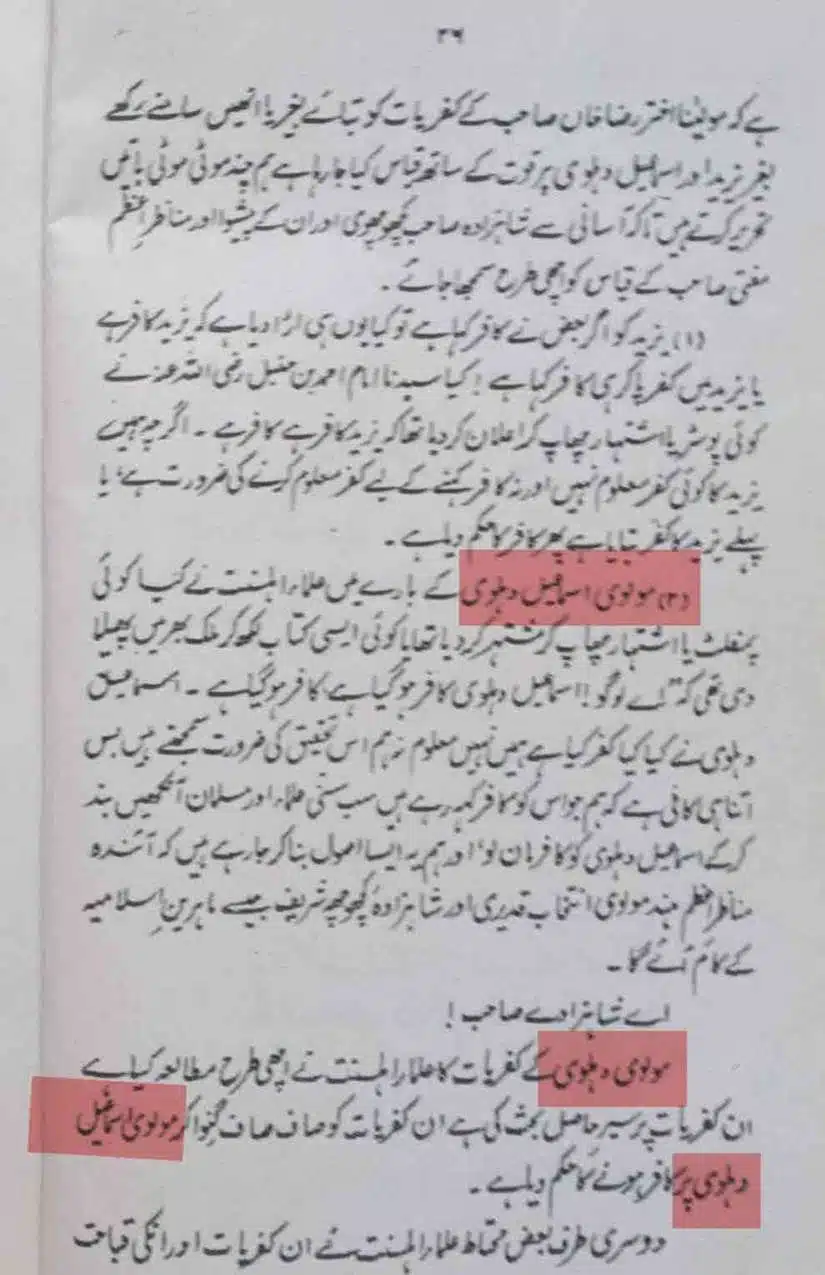 ۳۹
ہے کہ مولینا اختر رضا خاں صاحب کے کفریات کو بتائے بغیر یا انھیں سامنے رکھے
بغیر یزید اور اسماعیل دہلوی پر قوت کے ساتھ قیاس کیا جا رہا ہے ہم چند موٹی موٹی باتیں
تحریر کرتے ہیں تاکہ آسانی سے شاہزادہ صاحب کچھوچھوی اور ان کے پیشوا اور مناظر اعظم
مفتی صاحب کے قیاس کو اچھی طرح سمجھا جائے ۔
(۱) یزید کو اگر بعض نے کافر کہا ہے تو کیا یوں ہی اڑا دیا ہے کہ یزید کافر ہے
یا یزید میں کفر پا کر ہی کافر کہا ہے ! کیا سیدنا امام احمد بن حنبل رضی اللہ عنہ نے
کوئی پوسٹر یا اشتہار چھاپ کر اعلان کر دیا تھا کہ یزید کافر ہے کافر ہے ۔ اگرچہ ہمیں
یزید کا کوئی کفر معلوم نہیں اور نہ کافر کہنے کے لیے کفر معلوم کرنے کی ضرورت ہے، یا
پہلے یزید کا کفر بتایا ہے پھر کافر کا حکم دیا ہے ۔
(۲) مولوی اسماعیل دہلوی کے بارے میں علماء اہلسنت نے کیا کوئی
پمفلٹ یا اشتہار چھاپ کر مشتہر کر دیا تھا یا کوئی ایسی کتاب لکھ کر ملک بھر میں پھیلا
دی تھی کہ "اے لوگو! اسماعیل دہلوی کافر ہو گیا ہے کافر ہو گیا ہے ۔ اسماعیل
دہلوی نے کیا کیا کفر کیا ہے ہمیں نہیں معلوم نہ ہم اس تحقیق کی ضرورت سمجھتے ہیں بس
اتنا ہی کافی ہے کہ ہم جو اس کو کافر کہہ رہے ہیں سب سنی علماء اور مسلمان آنکھیں بند
کر کے اسماعیل دہلوی کو کافر مان لو' اور ہم یہ ایسا اصول بنا کر جا رہے ہیں کہ آئندہ
مناظر اعظم ہند مولوی انتخاب قدیری اور شاہزادۂ کچھوچھہ شریف جیسے ماہرینِ اسلامیہ
کے کام آئے گا ۔
اے شاہزادے صاحب !
مولوی دہلوی کے کفریات کا علماء اہلسنت نے اچھی طرح مطالعہ کیا ہے
ان کفریات پر سیر حاصل بحث کی ہے ان کفریات کو صاف صاف گنوا کر مولوی اسماعیل
دہلوی پر کافر ہونے کا حکم دیا ہے ۔
دوسری طرف بعض محتاط علماء اہلسنت نے ان کفریات اور انکی قباحت